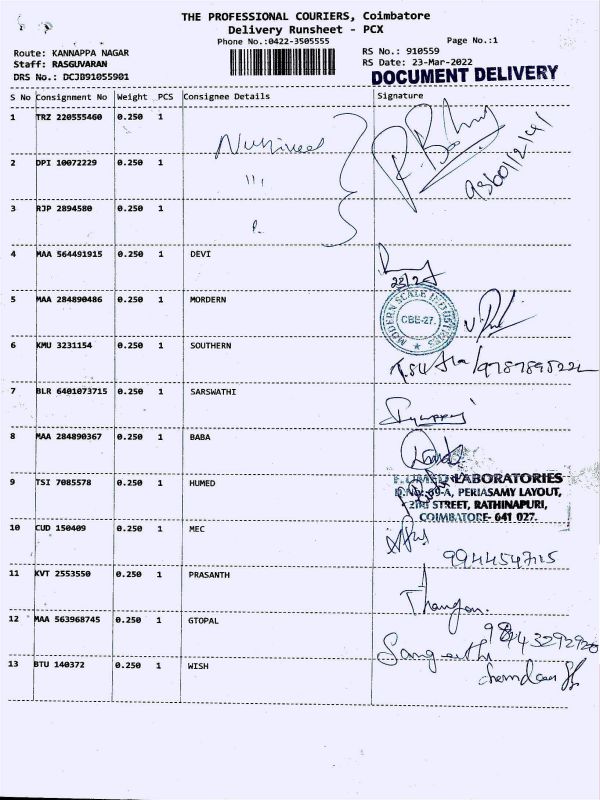 THE PROFESSIONAL COURIERS, Coimbatore
Delivery Runsheet - PCX
Phone No.:0422-3505555
Page No.:1
Route: KANNAPPA NAGAR
RS No.: 910559
Staff: RASGUVARAN
RS Date: 23-Mar-2022
DRS No.: DCJB91055901
DOCUMENT DELIVERY
S No Consignment No Weight PCS Consignee Details Signature
1 TRZ 220555460 0.250 1
2 DPI 10072229 0.250 1
3 RJP 2894580 0.250 1
4 MAA 564491915 0.250 1 DEVI
5 MAA 284890486 0.250 1 MORDERN
MODERN SCALE INDUSTRIES
CBE-27.
6 KMU 3231154 0.250 1 SOUTHERN
7 BLR 6401073715 0.250 1 SARSWATHI
8 MAA 284890367 0.250 1 BABA
9 TSI 7085578 0.250 1 HUMED
LABORATORIES
D.No: 69-A, PERIASAMY LAYOUT,
2nd STREET, RATHINAPURI,
COIMBATORE- 641 027.
10 CUD 150409 0.250 1 MEC
9944547115
11 KVT 2553550 0.250 1 PRASANTH
12 MAA 563968745 0.250 1 GTOPAL
Sangeethi
13 BTU 140372 0.250 1 WISH